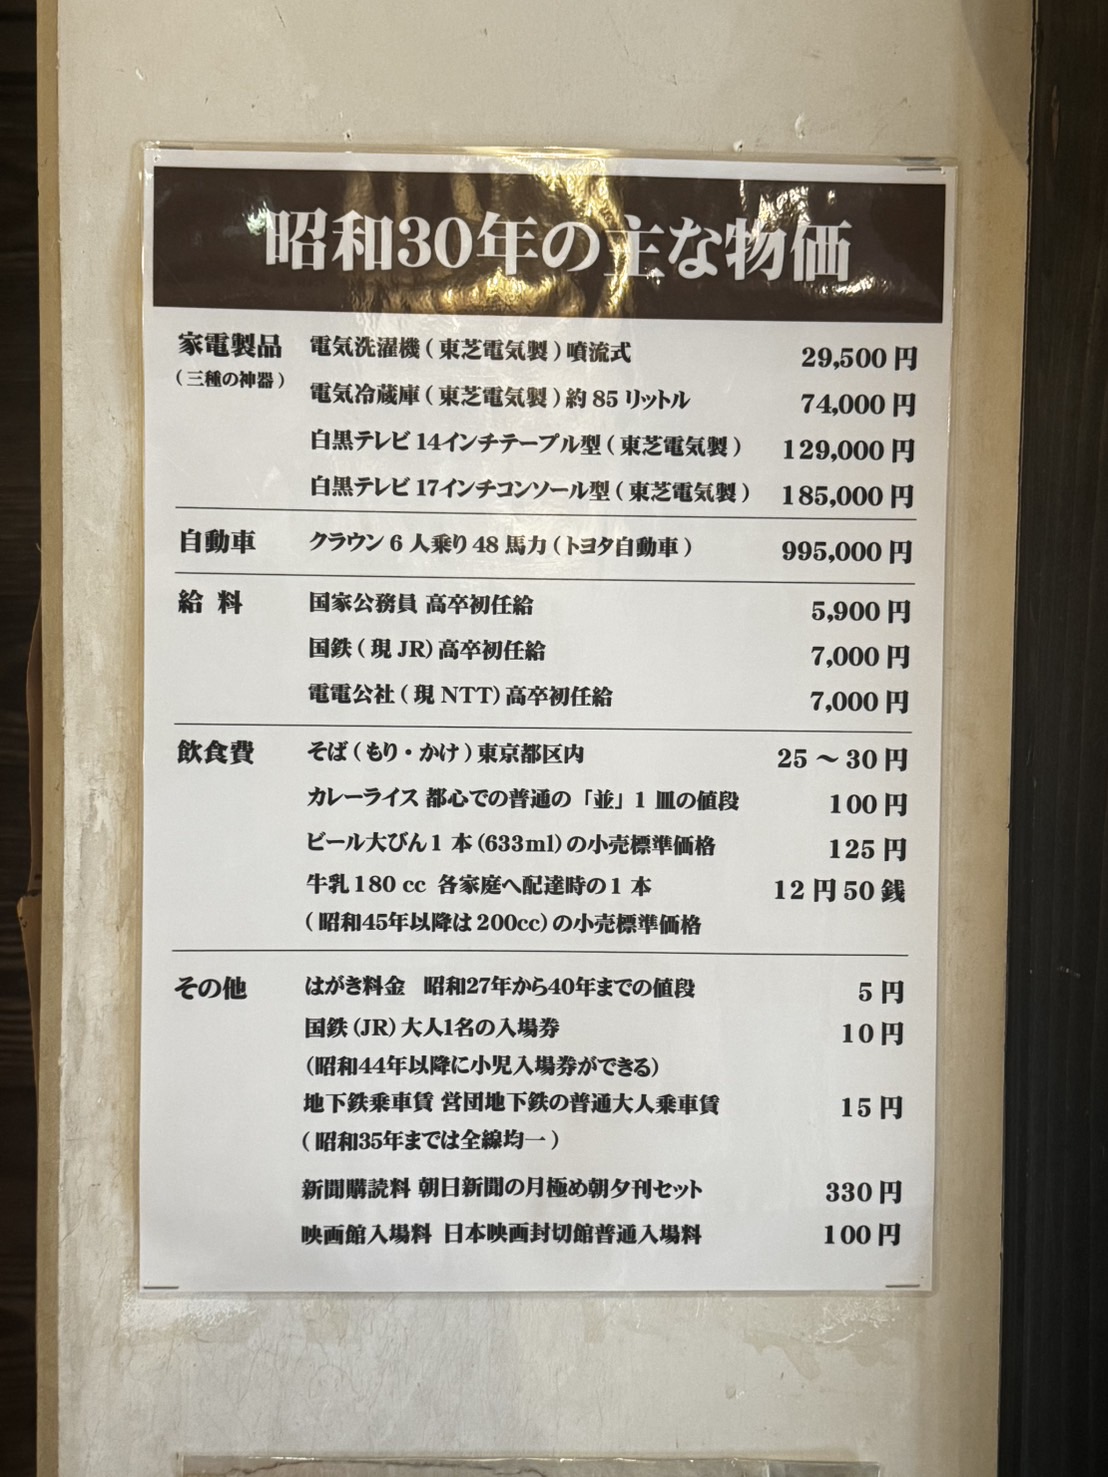 昭和30年の主な物価
家電製品 電気洗濯機(東芝電気製)噴流式 29,500円
(三種の神器)
電気冷蔵庫(東芝電気製)約85リットル 74,000円
白黒テレビ14インチテーブル型(東芝電気製) 129,000円
白黒テレビ17インチコンソール型(東芝電気製) 185,000円
自動車 クラウン6人乗り48馬力(トヨタ自動車) 995,000円
給料 国家公務員 高卒初任給 5,900円
国鉄(現JR)高卒初任給 7,000円
電電公社(現NTT)高卒初任給 7,000円
飲食費 そば(もり・かけ)東京都区内 25～30円
カレーライス 都心での普通の「並」1皿の値段 100円
ビール大びん1本(633ml)の小売標準価格 125円
牛乳180cc 各家庭へ配達時の1本 12円50銭
(昭和45年以降は200cc)の小売標準価格
その他 はがき料金 昭和27年から40年までの値段 5円
国鉄(JR)大人1名の入場券 10円
(昭和44年以降に小児入場券ができる)
地下鉄乗車賃 営団地下鉄の普通大人乗車賃 15円
(昭和35年までは全線均一)
新聞購読料 朝日新聞の月極め朝夕刊セット 330円
映画館入場料 日本映画封切館普通入場料 100円